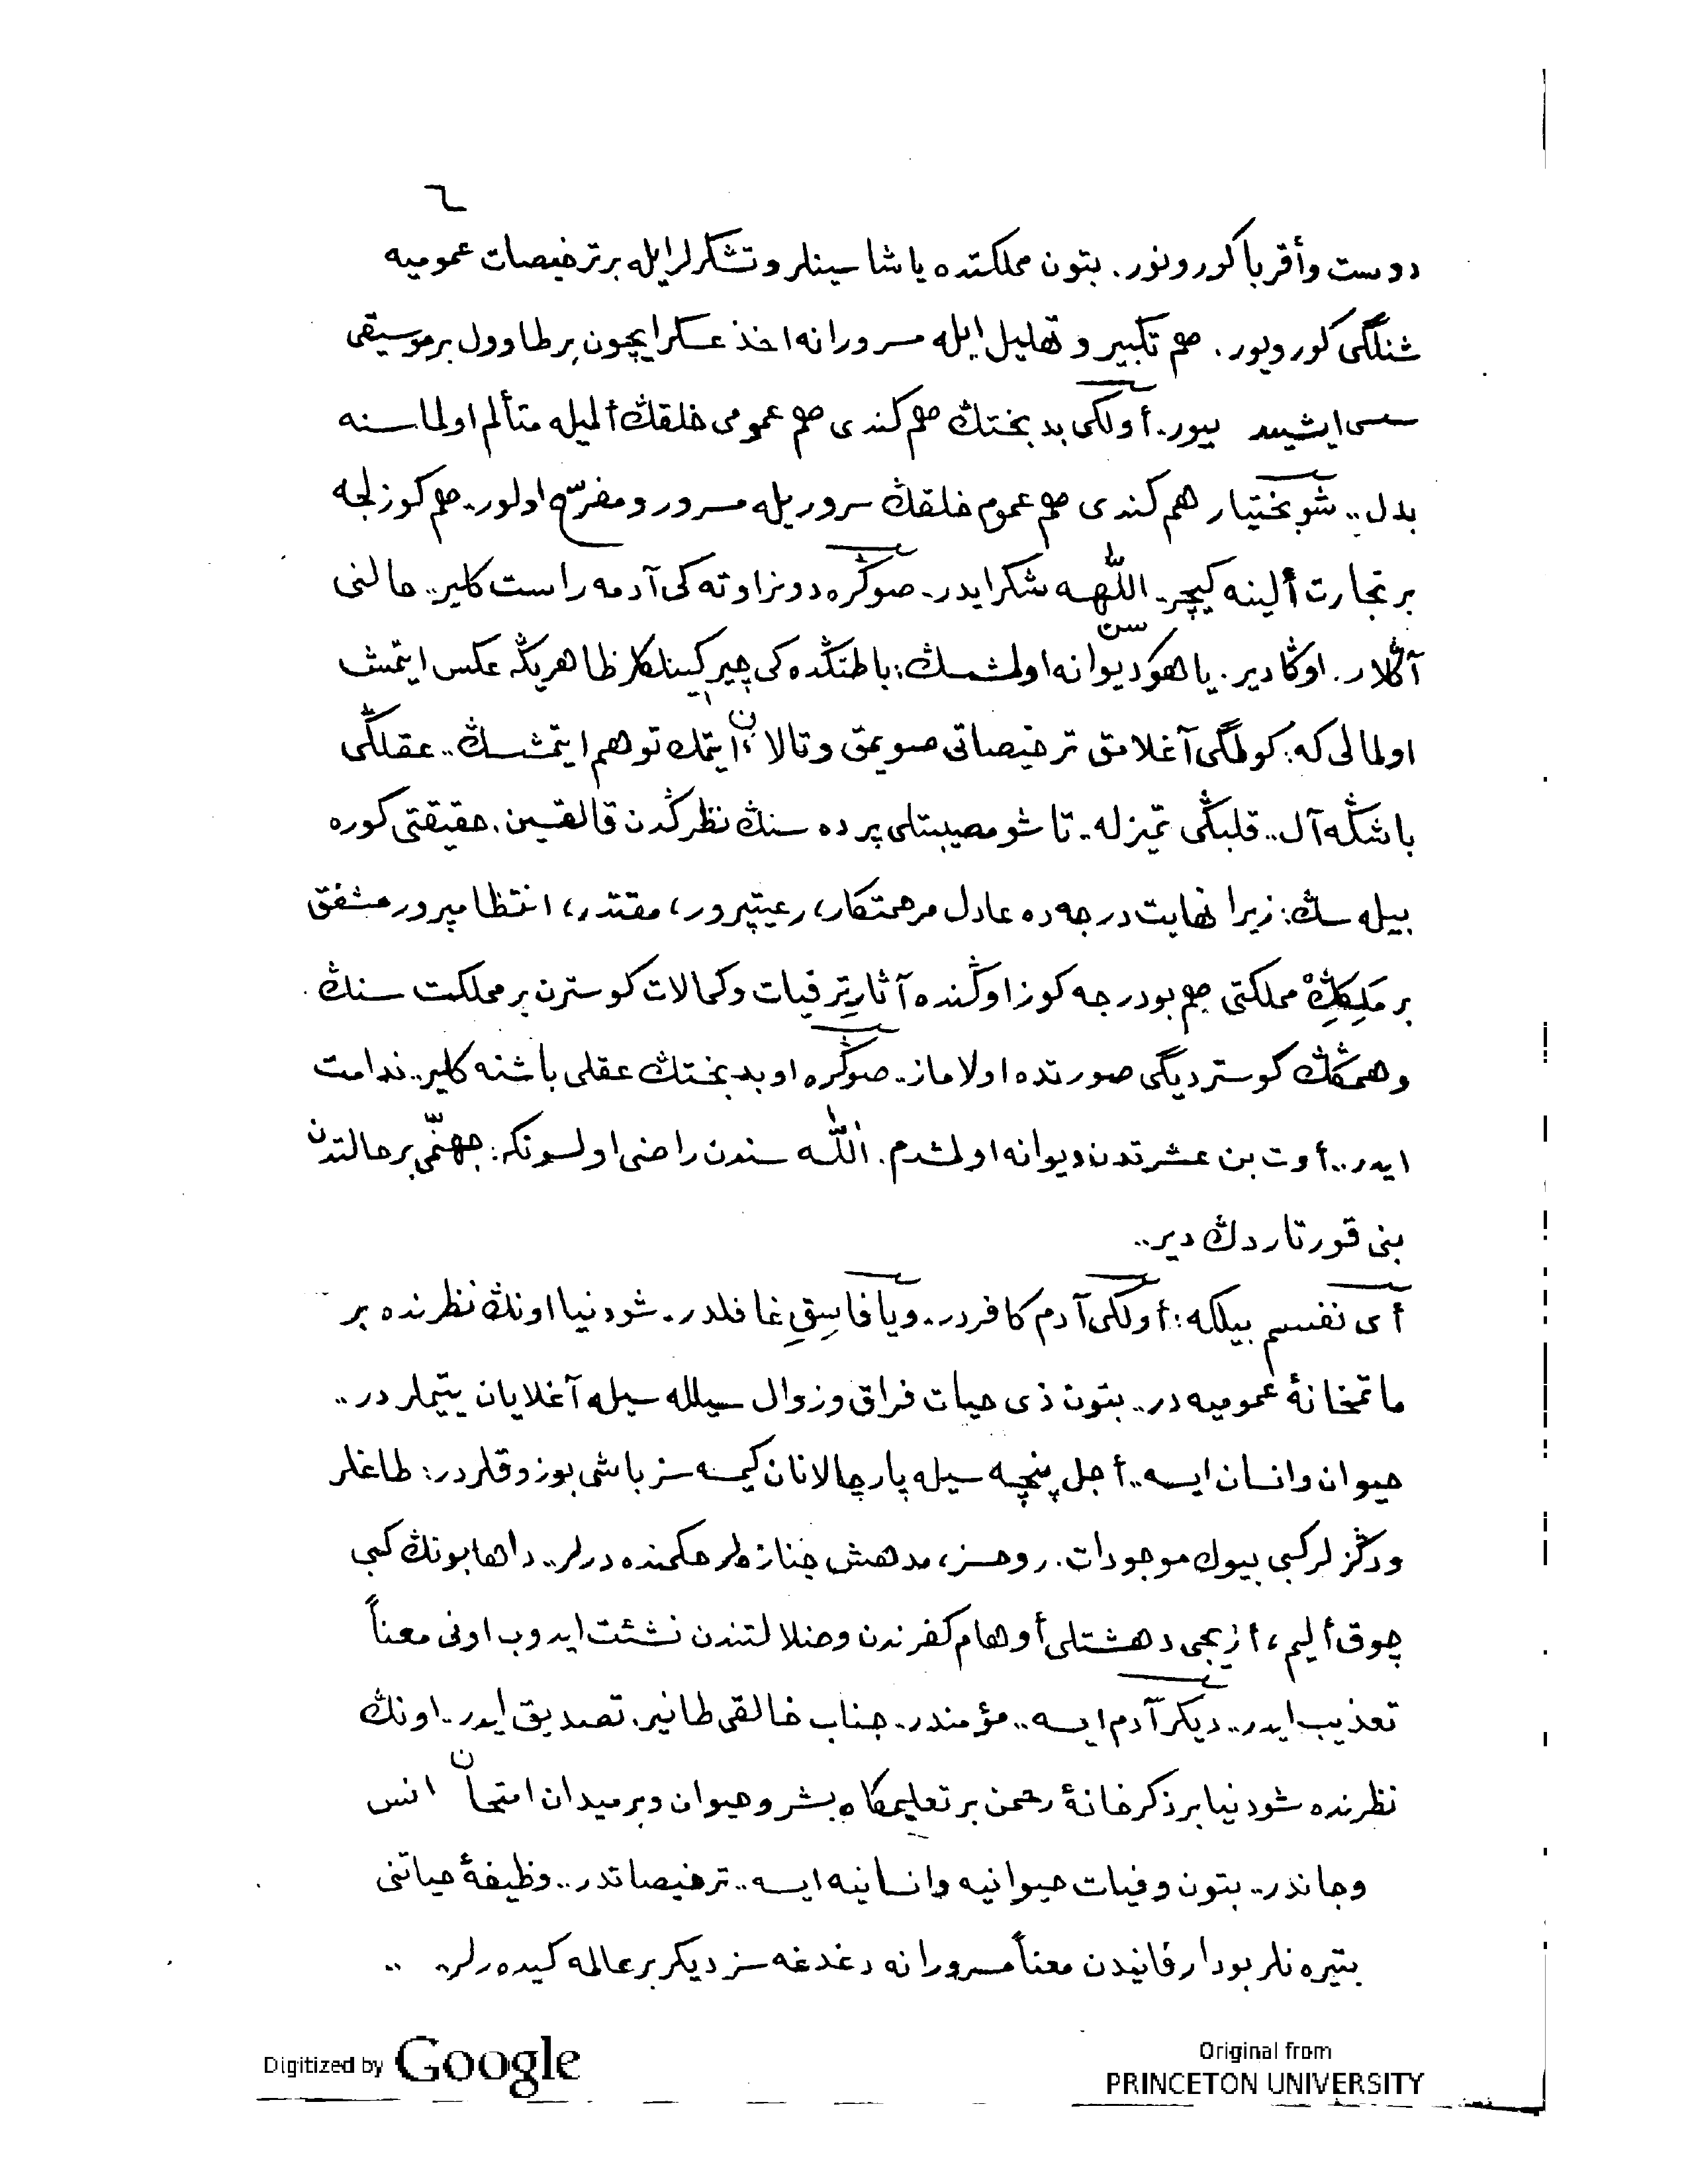 ٦
دوست وأقربا كورونور. بتون مملكتده ياشاسينلر و تشكرلرايله برترخيصات عموميه
شنلگى كورويور. هم تكبير و تهليل ايله مسرورانه اخذ عسكرايچون برطاوول برموسيقى
سسى ايشيد يبور.. أولكى بدبختڭ هم كندى هم عمومى خلقڭ ألميله متألم اولماسنه
بدل.. شوبختيار هم كندى هم عموم خلقڭ سروريله مسرور و مفرّح اولور.. هم كوزلجه
بر تجارت ألينه كيچر.. اللّٰهه شكرايدر.. صوڭره دونراوته كى آدمه راست كلير.. حالنى
آڭلار. اوڭا دير. ياهو سن ديوانه اولمشسڭ: باطنڭده كى چيركينلكلر ظاهريڭه عكس ايتمش
اولمالى كه: كولمگى آغلامق ترخيصاتى صويمق وتالان ايتمك توهم ايتمشسڭ.. عقلڭى
باشڭه آل.. قلبڭى تميزله.. تا شو مصيبتلى پرده سنڭ نظرڭدن قالقسين. حقيقتى كوره
بيله سڭ: زيرا نهايت درجه ده عادل مرحمتكار، رعيتپرور، مقتدر، انتظامپرور مشفق
بر مَلِكِڭْ مملكتى هم بودرجه كوز اوڭنده آثارِترقيات وكمالات كوسترن بر مملكت سنڭ
وهمڭڭ كوسترديگى صورتده اولاماز.. صوڭره او بدبختڭ عقلى باشنه كلير.. ندامت
ايدر.. أوت بن عشرتدن ديوانه اولمشدم. اللّٰه سندن راضى اولسونكه: جهنّمى برحالتدن
بنى قورتاردڭ دير..
أى نفسم بيلكه: أولكى آدم كافردر.. ويا فاسِقِ غافلدر.. شودنيا اونڭ نظرنده بر
ماتمخانهٔ عموميه در.. بتون ذى حيات فراق وزوال سيلله سيله آغلايان يتيملر در..
حيوان وانسان ايسه.. أجل پنچه سيله پارچالانان كيمسه سز باشى بوزوقلردر: طاغلر
ودڭزلر كبى بيوك موجودات. روحسز، مدهش جنازه لر حكمنده درلر.. داها بونڭ كبى
چوق أليم، أزيجى دهشتلى أوهام كفرندن وضلالتندن نشئت ايدوب اونى معناً
تعذيب ايدر.. ديكر آدم ايسه.. مؤمندر.. جناب خالقى طانير. تصديق ايدر.. اونڭ
نظرنده شودنيا برذكرخانهٔ رحمن بر تعليمكاه بشر و حيوان وبرميدان امتحان انس
وجاندر.. بتون وفيات حيوانيه وانسانيه ايسه.. ترخيصاتدر.. وظيفهٔ حياتنى
بتيره نلر بودار فانيدن معناً مسرورانه دغدغه سز ديكر برعالمه كيده رلر.. ..
Digitized by Google
Original from
PRINCETON UNIVERSITY